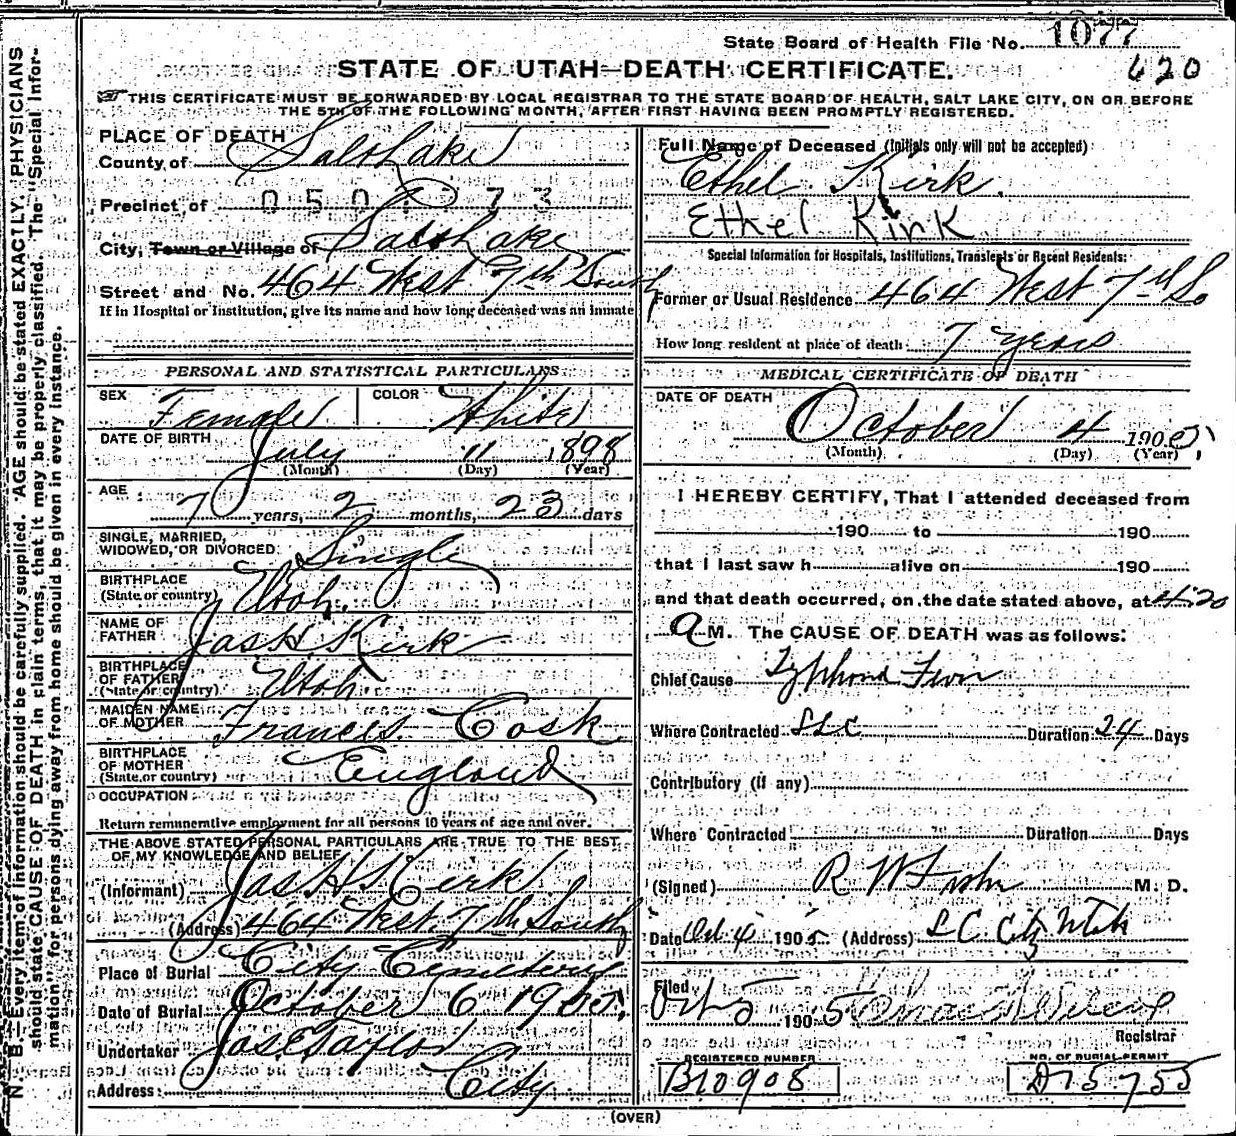 State Board of Health File No. 1077
420
STATE OF UTAH—DEATH CERTIFICATE.
THIS CERTIFICATE MUST BE FORWARDED BY LOCAL REGISTRAR TO THE STATE BOARD OF HEALTH, SALT LAKE CITY, ON OR BEFORE
THE 5TH OF THE FOLLOWING MONTH, AFTER FIRST HAVING BEEN PROMPTLY REGISTERED.
N. B.—Every item of information should be carefully supplied. AGE should be stated EXACTLY. PHYSICIANS
should state CAUSE OF DEATH in plain terms, that it may be properly classified. The "Special Infor-
mation" for persons dying away from home should be given in every instance.
PLACE OF DEATH
County of Salt Lake
Precinct of
City, Town or Village of Salt Lake
Street and No. 464 West 7th South
If in Hospital or Institution, give its name and how long deceased was an inmate
PERSONAL AND STATISTICAL PARTICULARS
SEX Female COLOR White
DATE OF BIRTH July 11 1898
(Month) (Day) (Year)
AGE 7 years, 2 months, 23 days
SINGLE, MARRIED,
WIDOWED, OR DIVORCED Single
BIRTHPLACE
(State or country) Utah.
NAME OF
FATHER Jas H. Kirk
BIRTHPLACE
OF FATHER
(State or country) Utah
MAIDEN NAME
OF MOTHER Frances Cosk
BIRTHPLACE
OF MOTHER
(State or country) England
OCCUPATION
Return remunerative employment for all persons 10 years of age and over.
THE ABOVE STATED PERSONAL PARTICULARS ARE TRUE TO THE BEST
OF MY KNOWLEDGE AND BELIEF
(Informant) Jas H Kirk
(Address) 464 West 7th South
Place of Burial City Cemetery
Date of Burial October 6 1905.
Undertaker Jos E Taylor
Address: City
Full Name of Deceased (Initials only will not be accepted)
Ethel Kirk.
Ethel Kirk
Special Information for Hospitals, Institutions, Transients or Recent Residents:
Former or Usual Residence 464 West 7th So
How long resident at place of death 7 years
MEDICAL CERTIFICATE OF DEATH
DATE OF DEATH
October 4 1905;
(Month) (Day) (Year)
I HEREBY CERTIFY, That I attended deceased from
190 to 190
that I last saw h alive on 190
and that death occurred, on the date stated above, at 4:20
A M. The CAUSE OF DEATH was as follows:
Chief Cause Typhoid Fever
Where Contracted SLC Duration 24 Days
Contributory (if any)
Where Contracted Duration Days
(Signed) R W M. D.
Date Oct 4 1905 (Address) S L C. City Utah
Filed
Oct 5 1905
Registrar
REGISTERED NUMBER
B10908
NO. OF BURIAL PERMIT
D15755
(OVER)